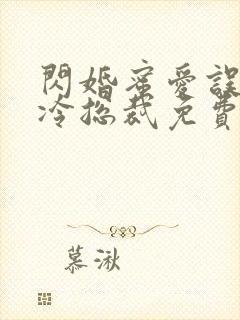 閃婚蜜愛誤
冷總裁免費
慕湫